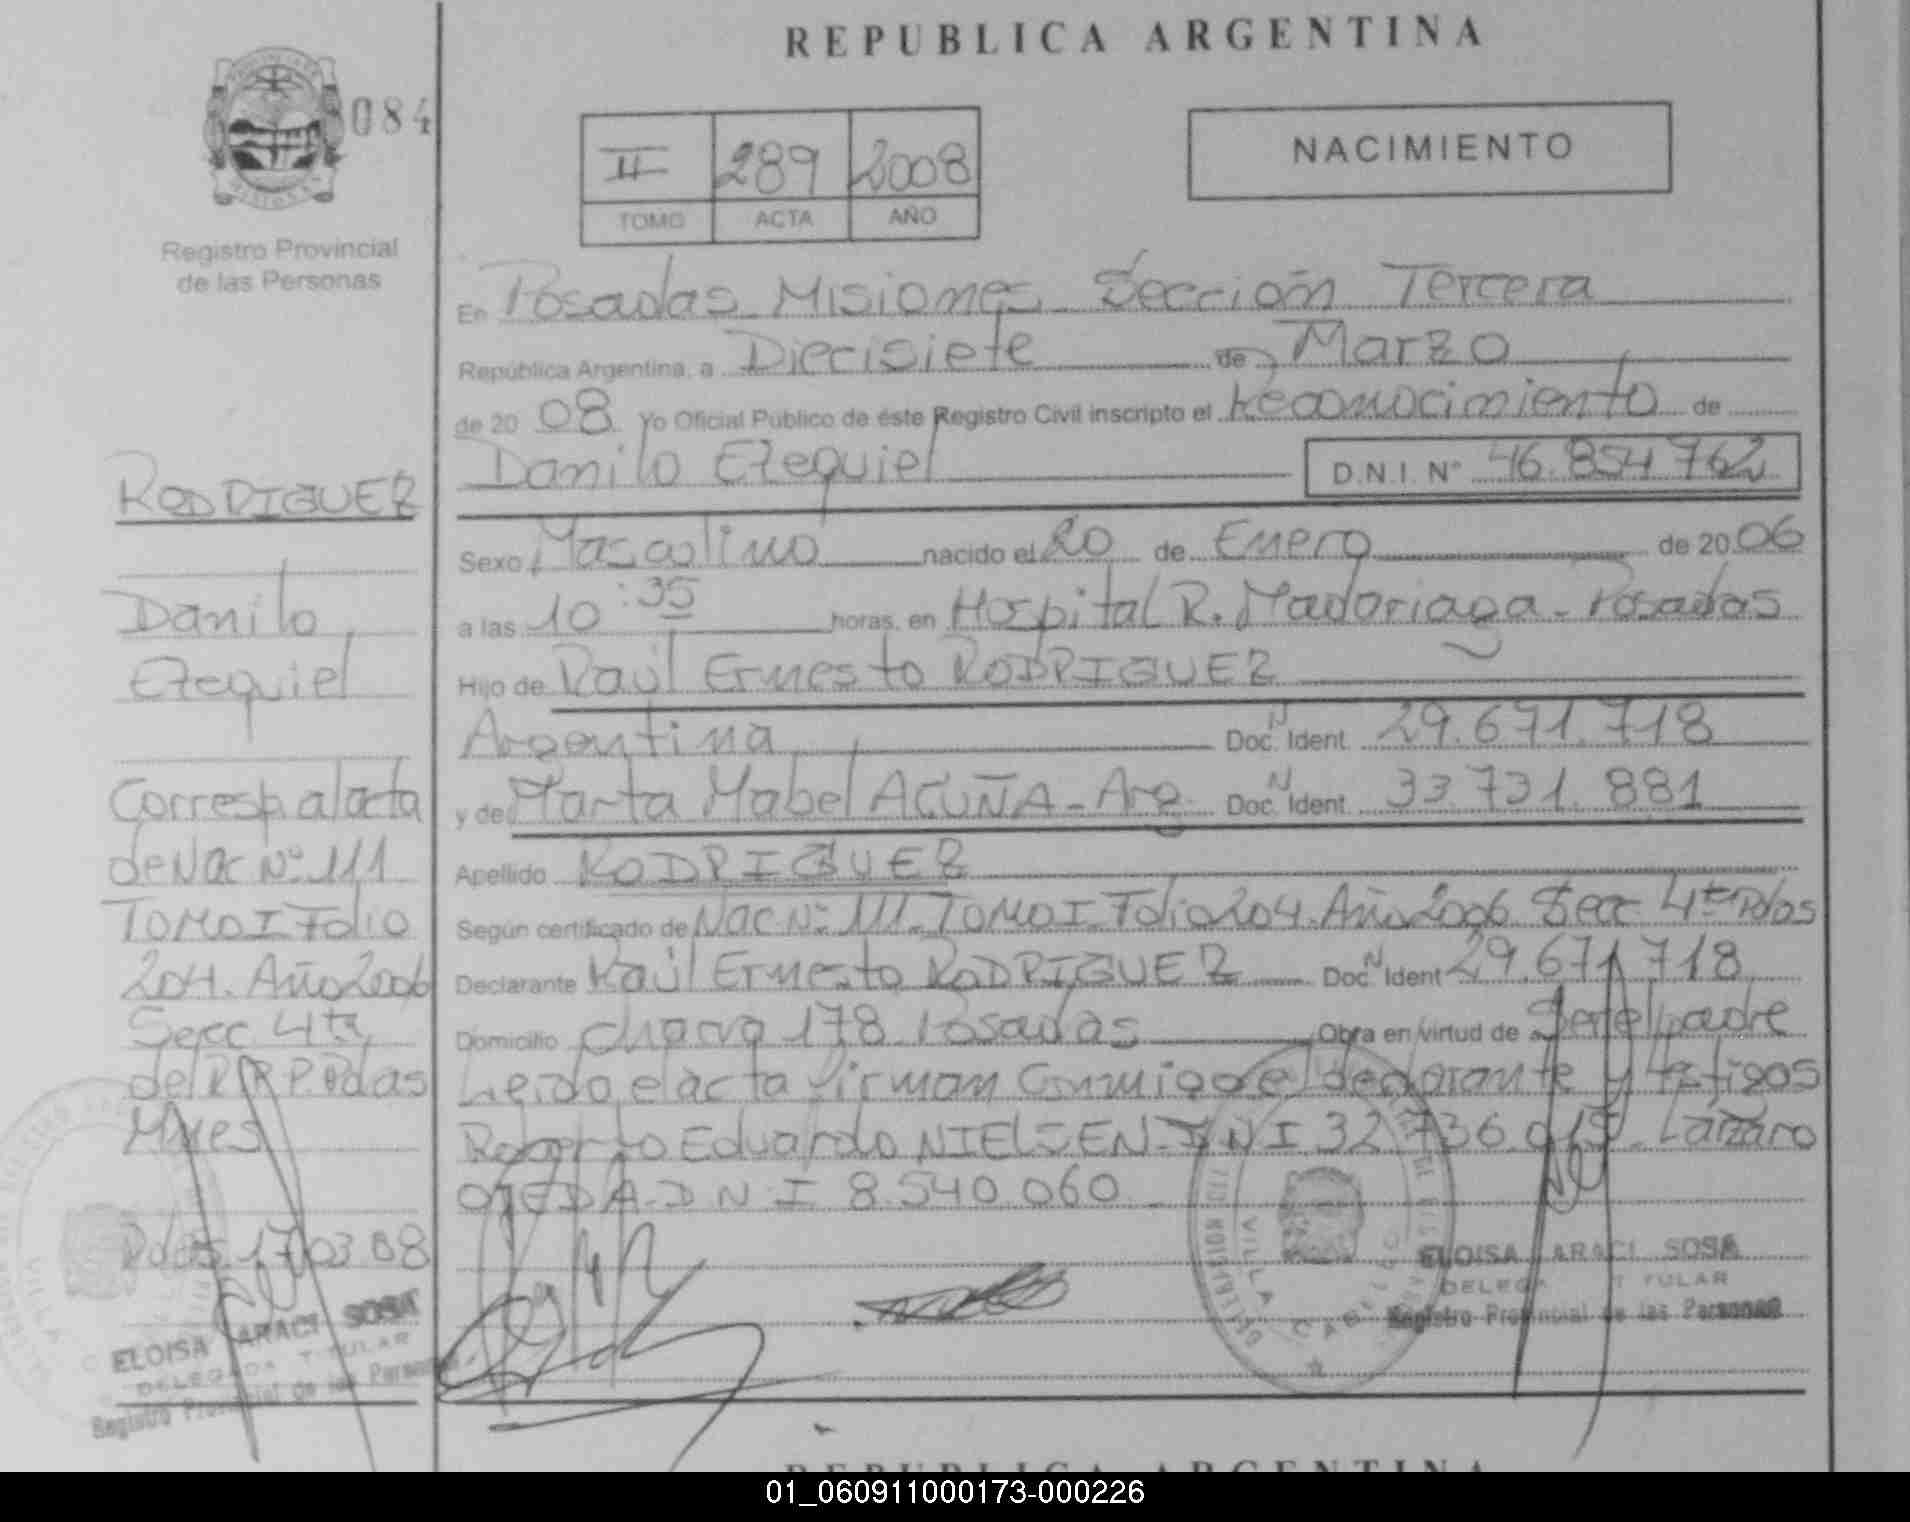 REPUBLICA ARGENTINA
084
II 289 2008
TOMO ACTA AÑO
NACIMIENTO
Registro Provincial
de las Personas
En Posadas Misiones Sección Tercera
República Argentina, a Diecisiete de Marzo
de 20 08 Yo Oficial Público de éste Registro Civil inscripto el Reconocimiento de
Danilo Ezequiel D.N.I. N° 46.854 762
Sexo Masculino nacido el 20 de Enero de 20 06
a las 10:35 horas, en Hospital R. Madariaga - Posadas
Hijo de Raúl Ernesto RODRIGUEZ
Argentina Doc. N Ident. 29.671.718
y de Marta Mabel ACUÑA - Arg. Doc. N Ident. 33 731. 881
Apellido RODRIGUEZ
Según certificado de Nac Nº 111. TOMO I. Folio 204. Año 2006 Secc 4ta Pdas
Declarante Raúl Ernesto RODRIGUEZ Doc. N Ident 29.671 718
Domicilio Chacra 178 Posadas Obra en virtud de Ser el padre
Leida el acta firman Conmigo el declarante y testigos
Roberto Eduardo NIELSEN D N I 32 736 015 Lázaro
OJEDA D N I 8.540.060
RODRIGUEZ
Danilo
Ezequiel
Corresp al acta
de Nac Nº 111
TOMO I Folio
204. Año 2006
Secc 4ta
del R P P. Pdas
Mnes
Pdas 17 03 08
ELOISA ARACI SOSA
DELEGADA TITULAR
Registro Provincial de las Personas
VILLA CABELLO
ELOISA ARACI SOSA
DELEGADA TITULAR
Registro Provincial de las Personas
REPUBLICA ARGENTINA
01_060911000173-000226